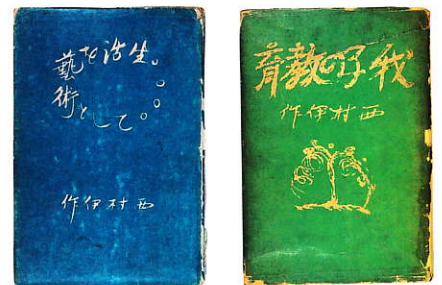 生活を
藝術として。。。。
西村伊作
我子の教育
西村伊作